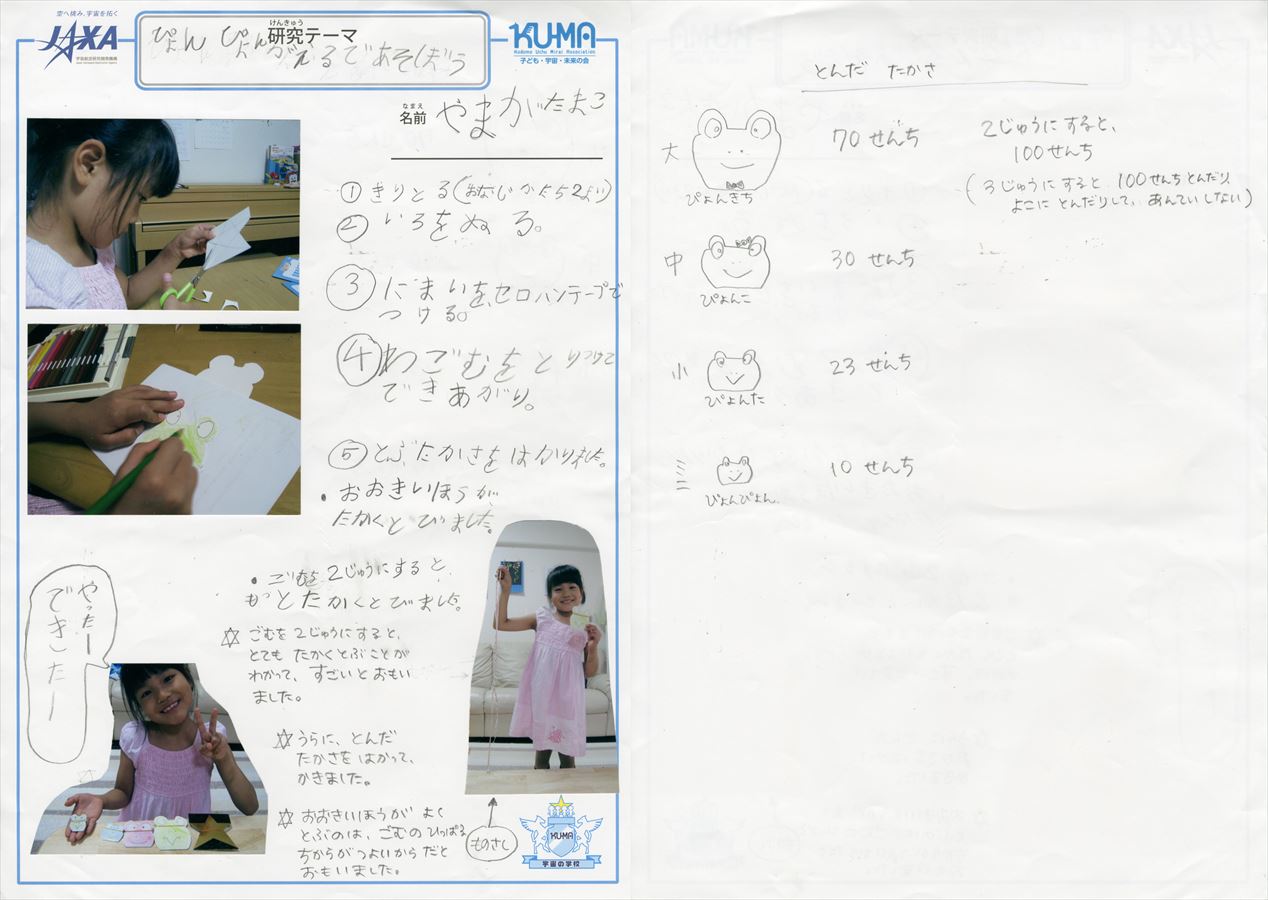 空へ挑み、宇宙を拓く
JAXA
けんきゅう
研究テーマ
ぴょん ぴょんがえるであそぼう
KUMA
Kodomo Uchu Mirai Association
子ども・宇宙・未来の会
なまえ
名前 やまがたまこ
① きりとる(おなじかたち2より)
② いろをぬる。
③ にまいを、セロハンテープで
つける。
④ わごむをとりつけて
できあがり。
⑤ とぶたかさをはかりました。
・おおきいほうが、
たかくとびました。
・ごむを2じゅうにすると、
もっとたかくとびました。
☆ ごむを2じゅうにすると、
とてもたかくとぶことが
わかって、すごいとおもい
ました。
☆ うらに、とんだ
たかさをはかって、
かきました。
☆ おおきいほうがよく
とぶのは、ごむのひっぱる
ちからがつよいからだと
おもいました。
やったー
できたー
ものさし
KUMA
宇宙の学校
とんだ たかさ
大 ぴょんきち 70せんち 2じゅうにすると、
100せんち
(3じゅうにすると、100せんちとんだり、
よこにとんだりして、あんていしない)
中 ぴょんこ 30せんち
小 ぴょんた 23せんち
ミニ ぴょんぴょん 10せんち